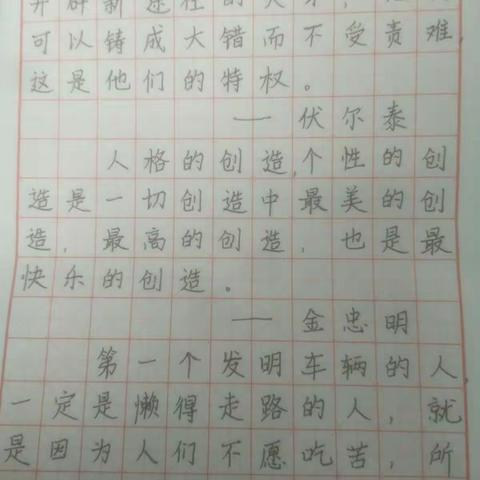 开辟新途径的
可以铸成大错而不受责难,
这是他们的特权。
——伏尔泰
人格的创造,个性的创
造是一切创造中最美的创
造,最高的创造,也是最
快乐的创造。
——金忠明
第一个发明车辆的人,
一定是懒得走路的人,就
是因为人们不愿吃苦,所